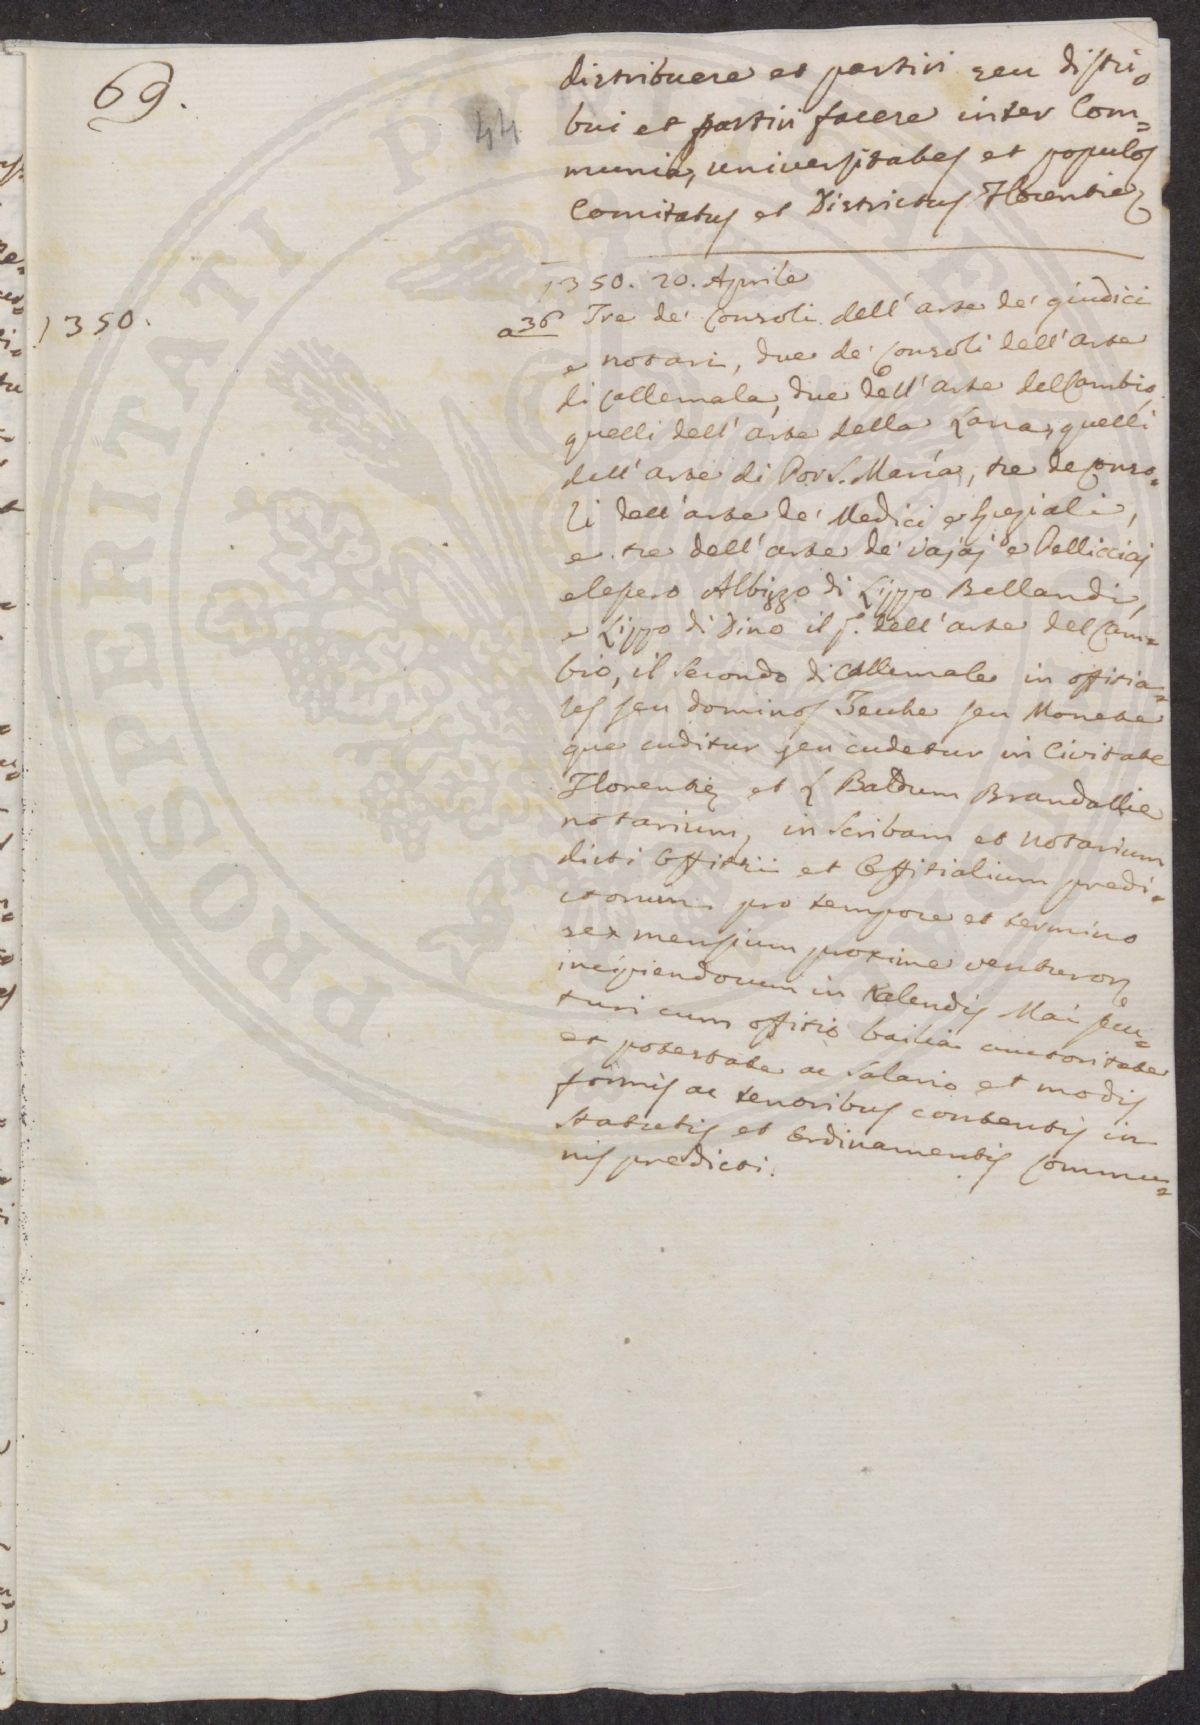 69.
44
distribuere et partiri seu distri=
bui et partiri facere inter Com=
munia, universitates et populos
Comitatus et Districtus Florentie
1350. 20. Aprile
1350.
a 36 Tre de' Consoli dell'arte de' giudici
e notari, due de' Consoli dell'arte
di Callemala, due dell'arte del Cambio,
quelli dell'arte della Lana, quelli
dell'arte di Por S. Maria, tre de Conso=
li dell'arte de' Medici e Speziali,
e tre dell'arte de' Vajaj e Pellicciaj
elessero Albizzo di Lippo Bellandi,
e Lippo di Dino il p. dell'arte del Cam=
bio, il secondo di Callemala in offitia=
les seu dominos Zecche seu Monete
que cuditur seu cudetur in Civitate
Florentie et Baldum Brandallie
notarium, in scribam et notarium
dicti Offitii et Offitialium predi=
ctorum pro tempore et termino
sex mensium proxime venturor
incipiendorum in Kalendis Mai fu=
turi cum offitio bailia auctoritate
et potestate ac salario et modis
formis ac tenoribus contentis in
statutis et ordinamentis Commu=
nis predicti.
PROSPERITATI